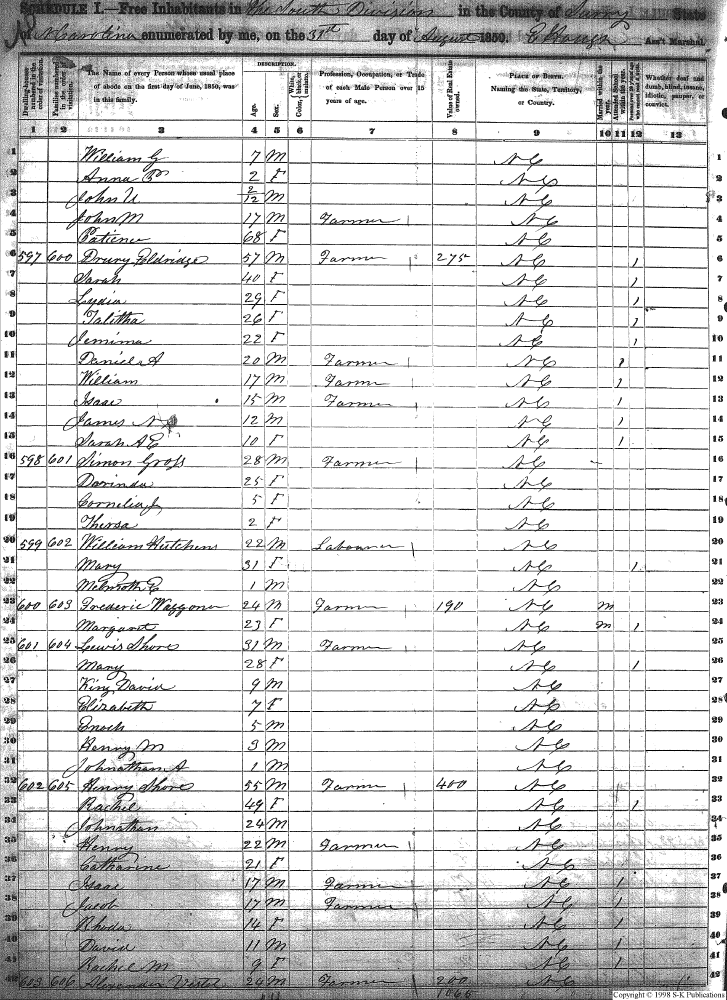 SCHEDULE I.—Free Inhabitants in the South Division in the County of Surry State
of N Carolina enumerated by me, on the 31st day of August 1850. Ass't Marshal.
Dwelling-houses numbered in the order of visitation.
Families numbered in the order of visitation.
The Name of every Person whose usual place of abode on the first day of June, 1850, was in this family.
DESCRIPTION.
Age.
Sex.
Color, White, black, or mulatto.
Profession, Occupation, or Trade of each Male Person over 15 years of age.
Value of Real Estate owned.
PLACE OF BIRTH. Naming the State, Territory, or Country.
Married within the year.
Attended School within the year.
Whether deaf and dumb, blind, insane, idiotic, pauper, or convict.
1 2 3 4 5 6 7 8 9 10 11 12 13
1 William G 7 M N C 1
2 Anna 2 F N C 2
3 John U 2/12 M N C 3
4 John M 17 M Farmer N C 4
5 Patience 68 F N C 5
6 597 600 Drury Eldridge 57 M Farmer 275 N C 1 6
7 Sarah 40 F N C 1 7
8 Lydia 29 F N C 1 8
9 Talitha 26 F N C 1 9
10 Jemima 22 F N C 1 10
11 Daniel A 20 M Farmer N C 1 11
12 William 17 M Farmer N C 1 12
13 Isaac 15 M Farmer N C 1 13
14 James N 12 M N C 1 14
15 Sarah A E 10 F N C 1 15
16 598 601 Simon Gross 28 M Farmer N C 16
17 Darinda 25 F N C 17
18 Cornelia J 5 F N C 18
19 Thersa 2 F N C 19
20 599 602 William Hutchens 22 M Labourer N C 20
21 Mary 31 F N C 1 21
22 1 M N C 22
23 600 603 Frederic Waggoner 24 M Farmer 190 N C M 23
24 Margaret 23 F N C M 1 24
25 601 604 Lewis Shores 31 M Farmer N C 25
26 Mary 28 F N C 1 26
27 King David 9 M N C 27
28 Elizabeth 7 F N C 28
29 Enoch 5 M N C 29
30 Henry M 3 M N C 30
31 Johnathan A 1 M N C 31
32 602 605 Henry Shores 55 M Farmer 400 N C 32
33 Rachel 49 F N C 1 33
34 Johnathan 24 M N C
35 Henry 22 M Farmer N C
36 Catharine 21 F N C
37 Isaac 17 M Farmer N C 1
38 Jacob 17 M Farmer N C 1
39 Rhoda 14 F N C 1
40 David 11 M N C 1
41 Rachel M 9 F N C 1
42 603 606 Alexander Vestal 24 M Farmer 200 N C
Copyright © 1998 S-K Publications